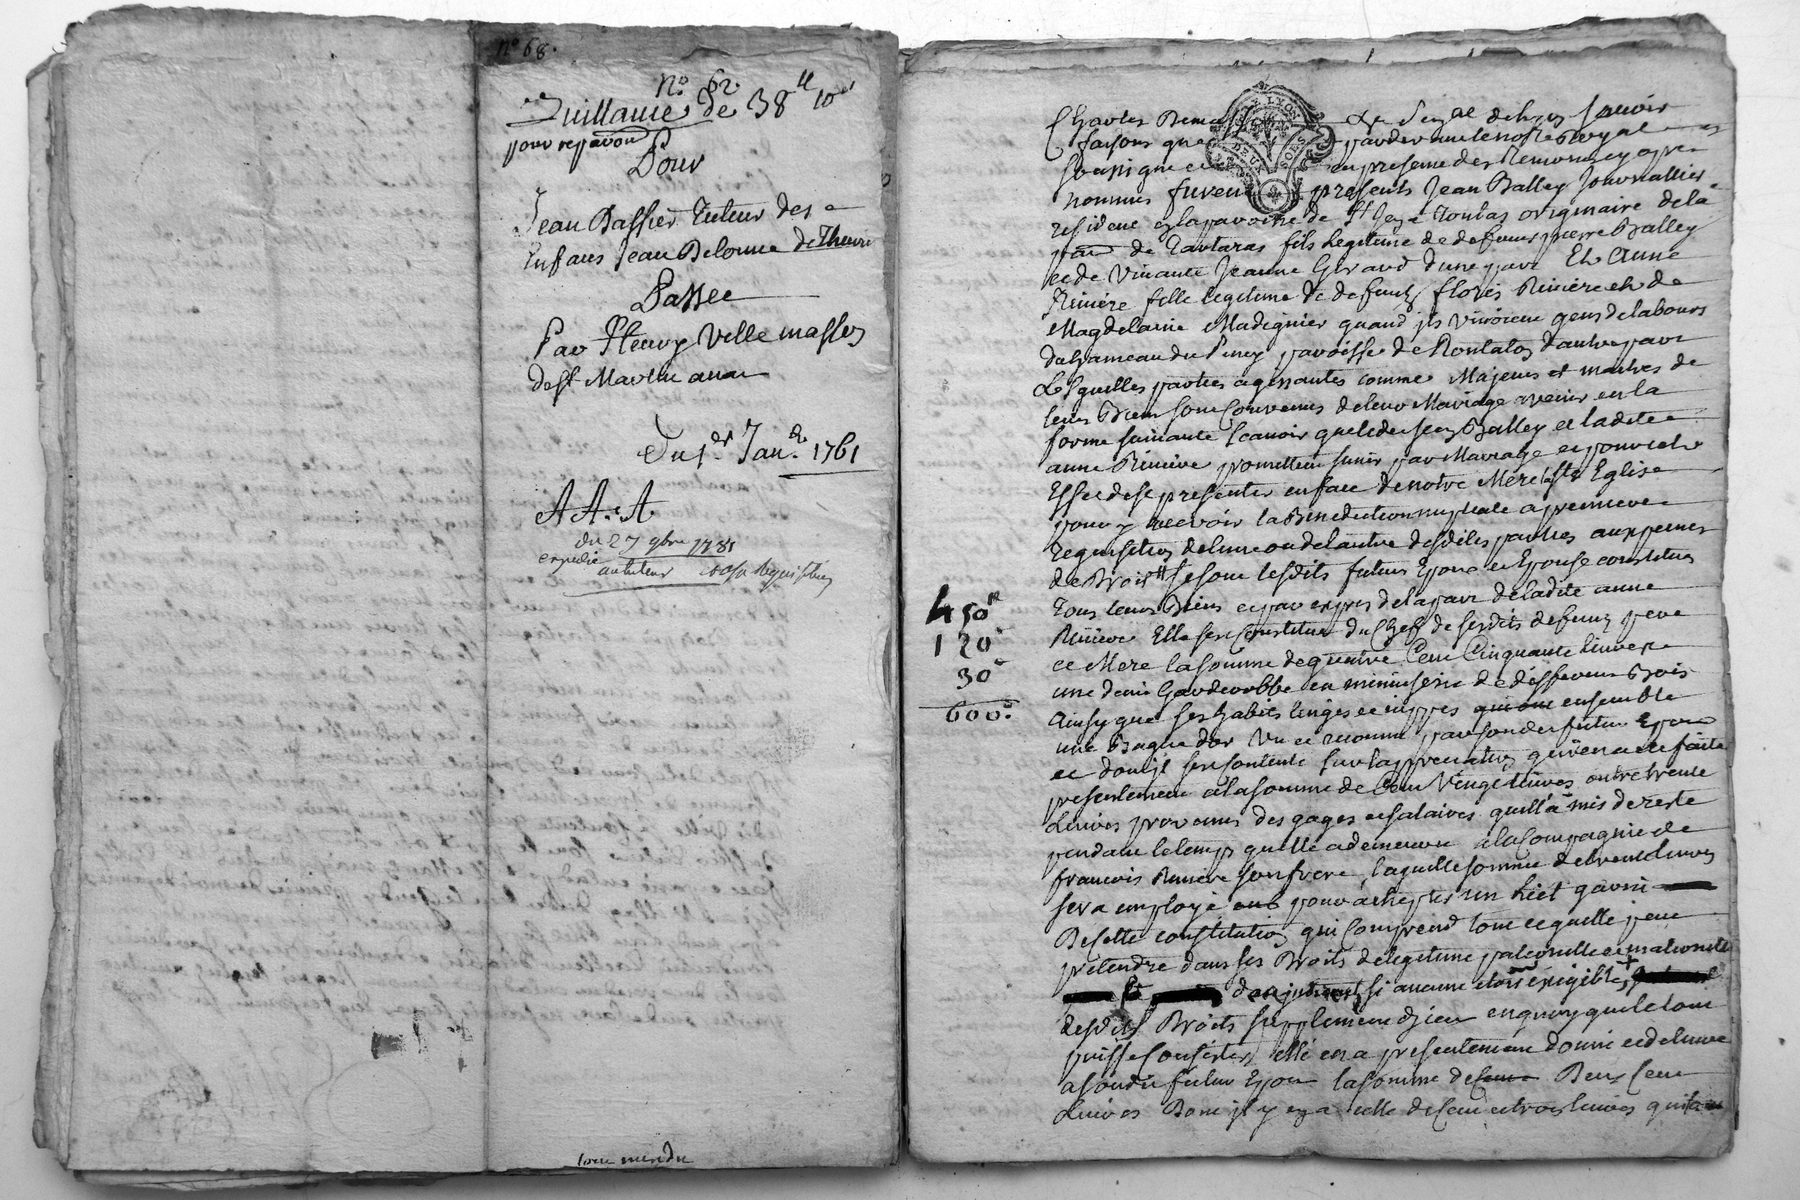 n.° 68.
N.° 62
Quittance de 38ᵗᵗ 10ˢ
pour reparon
Pour
Jean Bassier Tuteur des
Enfans Jean Delorme de Theuri
Passee
Par Fleury Villemasses
de St Martin
Du 1er Janr. 1761
A A. A
du 27 9bre 1781
expedié
au tuteur a sa requisition
Charles
faisons que par devant le notre Royal
soussigne et en presence des temoins cy apres
nommes furent presents Jean Balley Journallier
residant en la paroisse de St Jean a Toulas originaire de la
par de Tartaras fils legitime de defunt pierre Balley
et de vivante Jeanne Giraud d'une part Et Anne
Riviere fille legitime de defunt floris Riviere et de
Magdelaine Madignier quand ils vivoient gens de labours
du hameau du Piney paroisse de Rontalon d'autre part
Lesquelles parties agissantes comme Majeurs et maitres de
leurs Biens sont convenus de leur Mariage a venir en la
forme suivante scavoir que ledit Jean Balley et ladite
anne Riviere promettent s'unir par Mariage et pour cet
Effet de se presenter en face de notre Mere Ste Eglise
pour y recevoir la Benediction nuptiale a premiere
requisition de l'une ou de l'autre desdites parties aux peines
de Droit se sont lesdits futurs Epoux et Epouse constitués
Tous leurs Biens et par expres de la part de ladite anne
Riviere Elle s'est constituee du Chef de sesdits defunts pere
450ᵗᵗ
et Mere la somme de quatre Cent Cinquante livres
120
une demi Garderobbe en menuiserie de differents Bois
30
Ainsy que ses habits linges et nippes qui ont ensemble
600.
une Bague d'or vu et reconnu par son dit futur Epoux
et dont il s'est contenté sur l'appretiation qui en a ete faite
presentement a la somme de Cent Vingt livres outre trente
Livres provenus des gages et salaires quil a mis de reste
pendant le temps quelle a demeuré a la Compagnie de
francois Riviere son frere, laquelle somme de trente livres
sera employé pour achepter un Liet garni
De cette constitution qui Comprend tout ce quelle peut
pretendre dans ses Droits de legitime paternelle et maternelle
si aucune etoit exigible
desdits Droits supplement d'jceux en quoy que le tout
puisse Consister, elle en a presentement donné et delivré
a son dit futur Epoux la somme de Deux Cent
Livres Dont il y en a celle de Cent et trois livres
tout est du